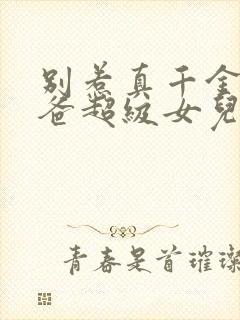 别惹真千金
爸超级女儿
青春是首璀璨